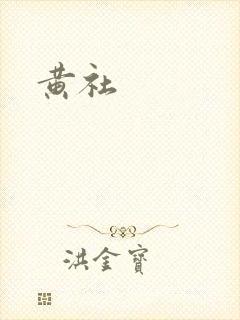 黄社
洪金寶